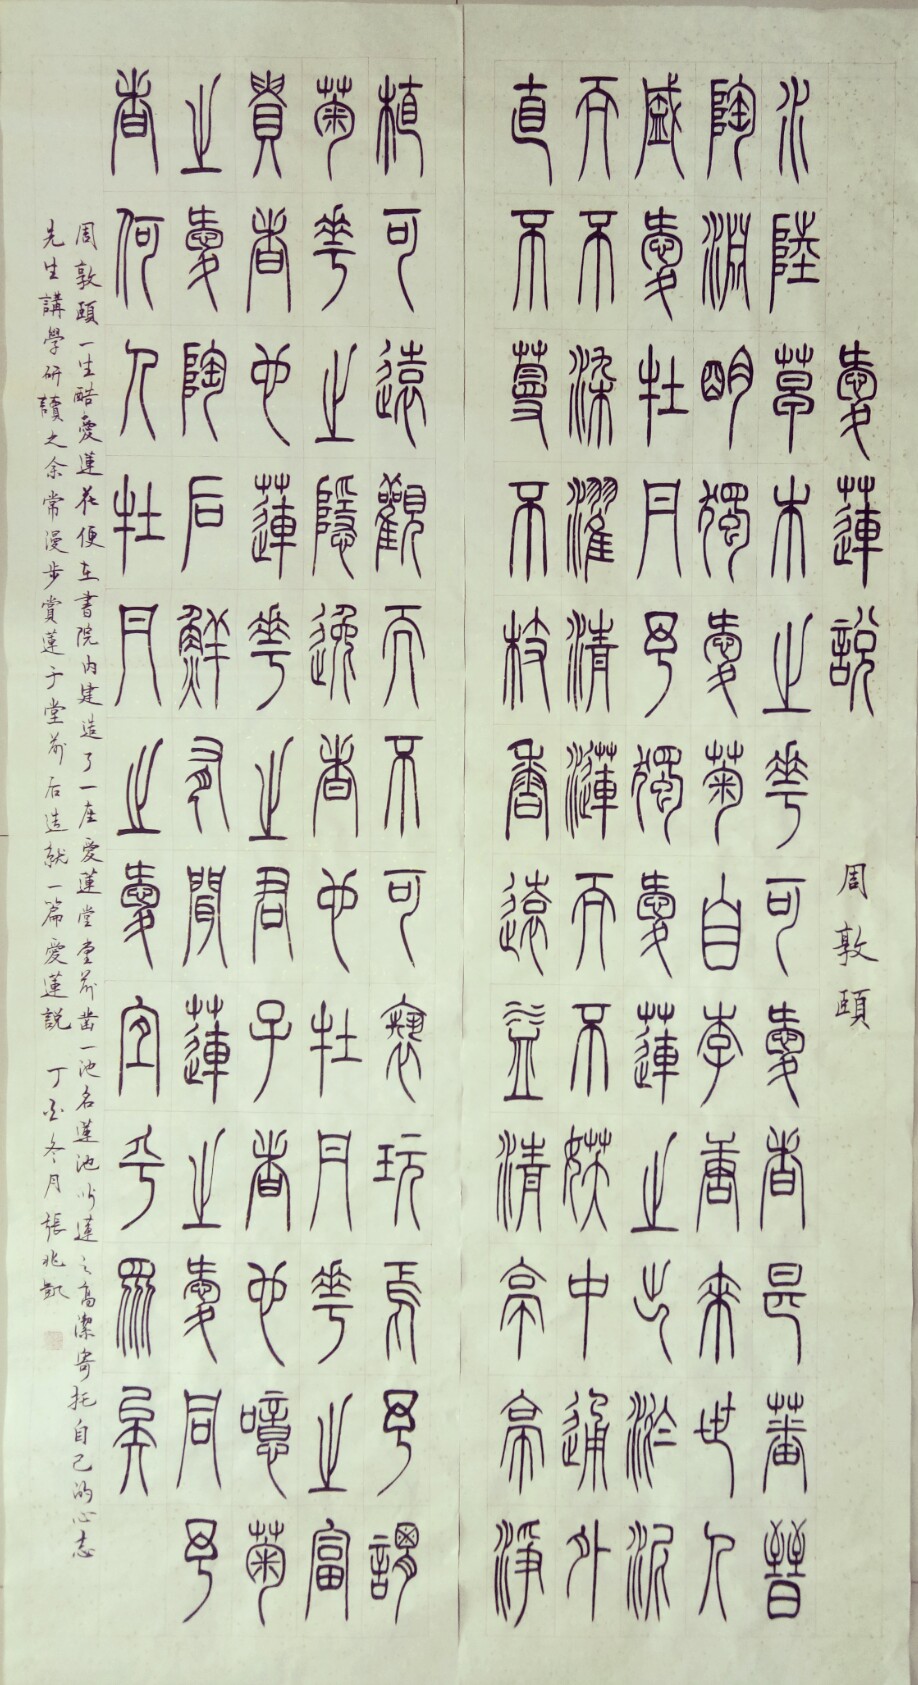 愛蓮說 周敦頤
水陸草木之華可愛者甚蕃晉
陶淵明獨愛菊自李唐來世人
盛愛牡丹予獨愛蓮之出淤泥
而不染濯清漣而不媄中通外
直不蔓不枝香遠益清亭亭淨
植可遠觀而不可褻玩焉予謂
菊華之隱逸者也牡丹華之富
貴者也蓮華之君子者也噫菊
之愛陶后鮮有聞蓮之愛同予
者何人牡丹之愛宜乎眾矣
周敦頤一生酷愛蓮花便在書院內建造了一座愛蓮堂堂前凿一池名蓮池以蓮之高潔寄托自己的心志
先生講學研讀之余常漫步賞蓮于堂前后造就一篇愛蓮説 丁酉冬月 張兆凱